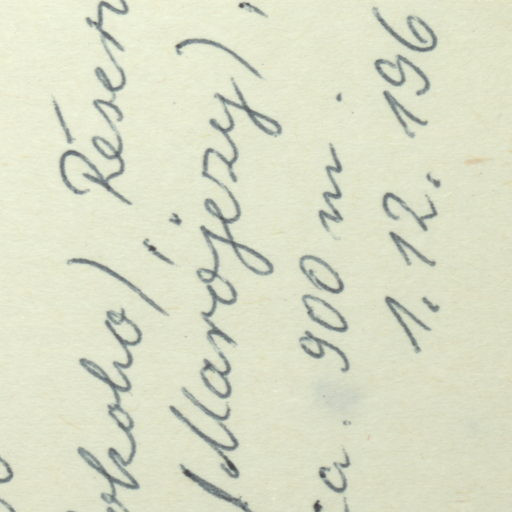 okoho); Réser
(Marojezy),
ca. 900 m.
1.12.196